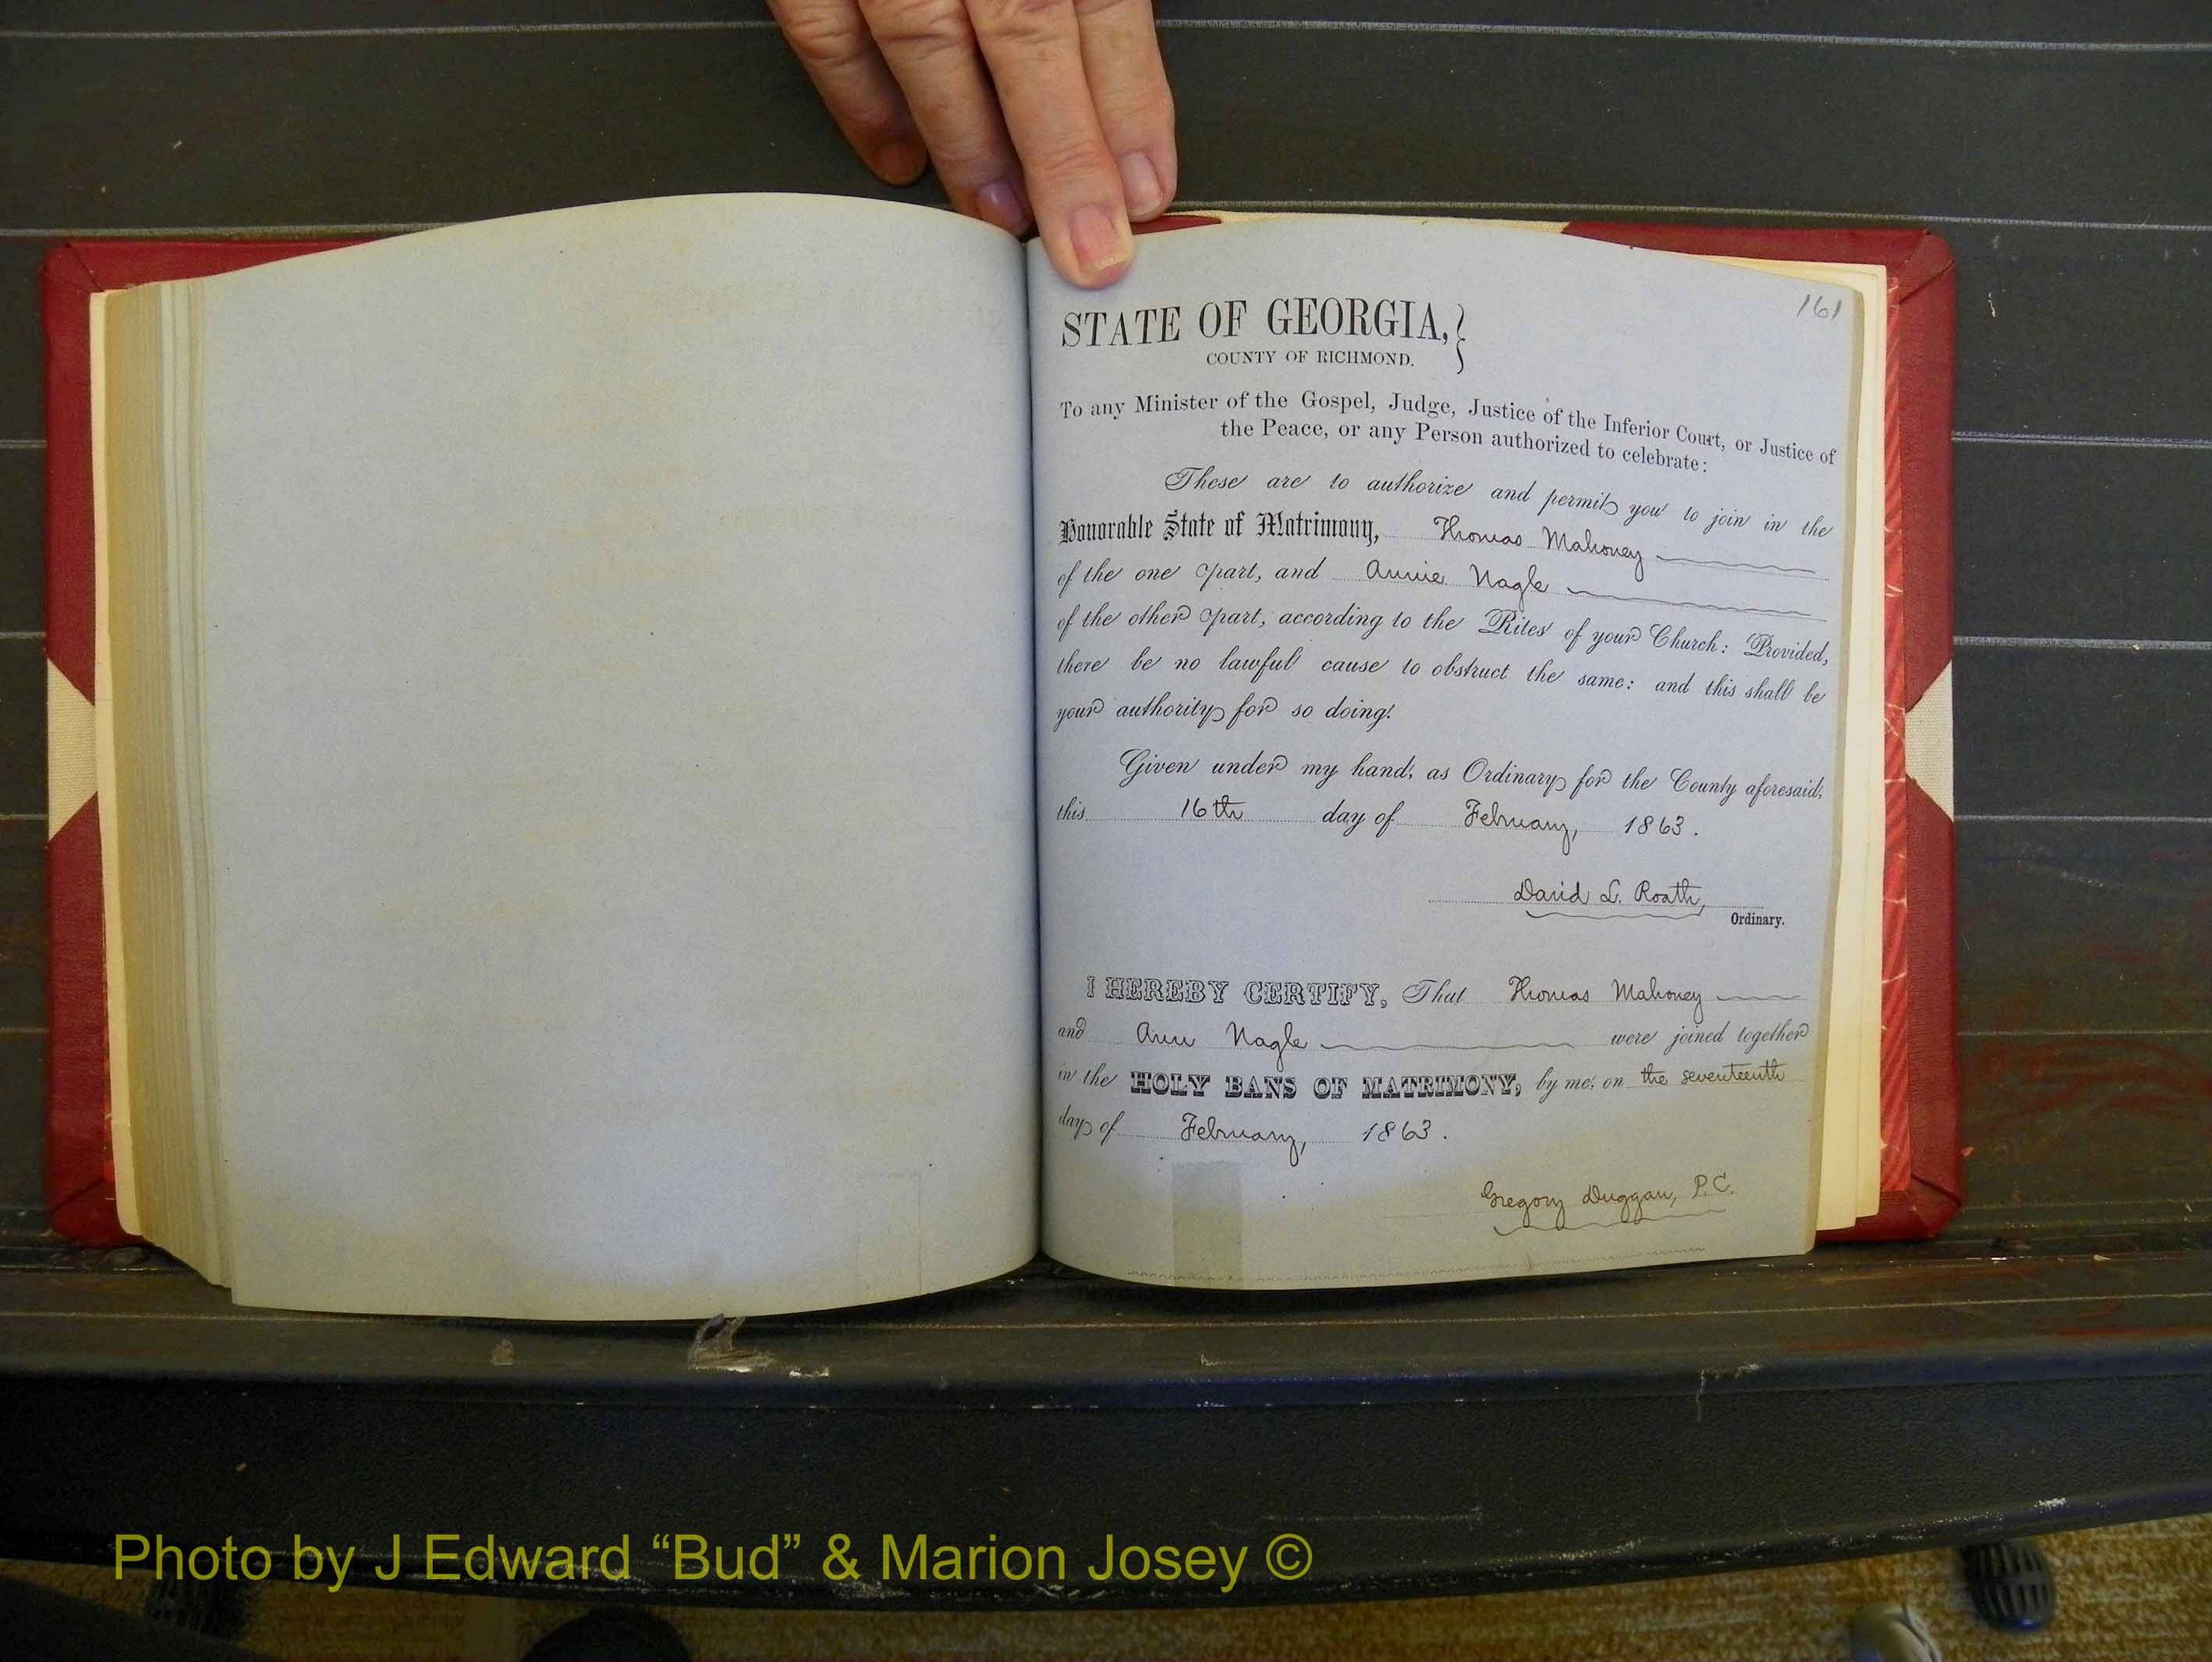 161
STATE OF GEORGIA,
COUNTY OF RICHMOND.
To any Minister of the Gospel, Judge, Justice of the Inferior Court, or Justice of
the Peace, or any Person authorized to celebrate:
These are to authorize and permit you to join in the
Honorable State of Matrimony, Thomas Mahoney
of the one part, and Annie Nagle
of the other part, according to the Rites of your Church: Provided,
there be no lawful cause to obstruct the same: and this shall be
your authority for so doing.
Given under my hand, as Ordinary for the County aforesaid,
this 16th day of February, 1863.
David L. Roath,
Ordinary.
I HEREBY CERTIFY, That Thomas Mahoney
and Ann Nagle were joined together
in the HOLY BANS OF MATRIMONY, by me, on the seventeenth
day of February, 1863.
Gregory Duggan, P.C.
Photo by J Edward “Bud” & Marion Josey ©